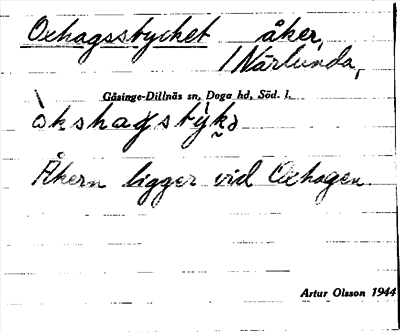 Oxhagsstycket åker,
1 Närlunda,
Gåsinge-Dillnäs sn, Daga hd, Söd. l.
Åkern ligger vid Oxhagen.
Artur Olsson 1944